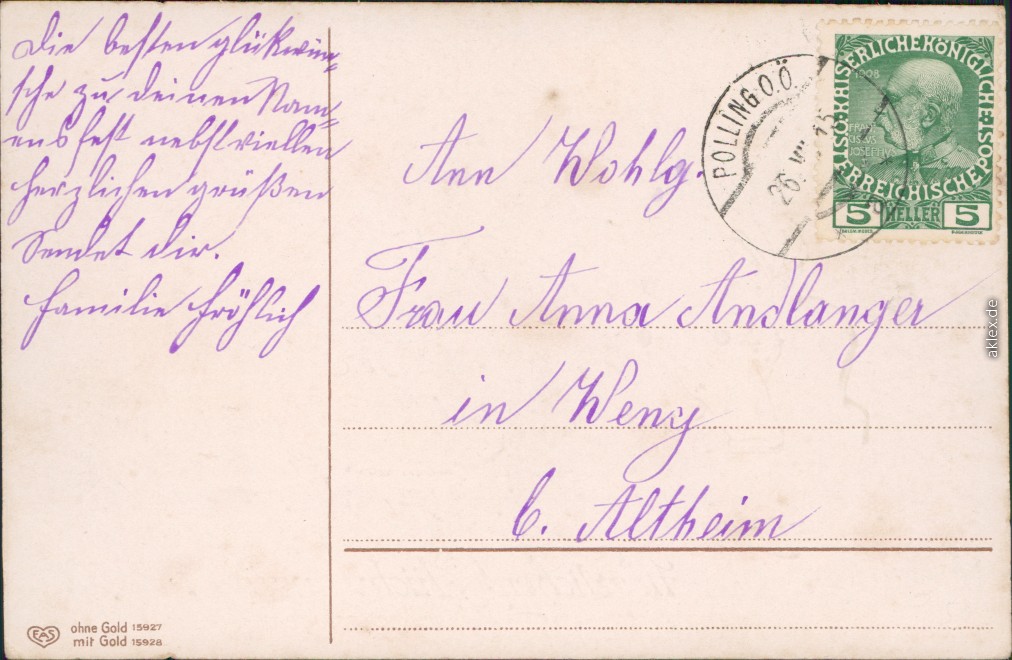 Die besten glükwün-
sche zu deinen Nam-
ensfest nebst viellen
herzlichen grüßen
Sendet dir.
Familie Fröhlich
POLLING O.Ö.
26. VII. 15
KAISERLICHE KÖNIGLICHE
ÖSTERREICHISCHE POST
1908
FRANZ
IOSEPH I
5 HELLER 5
Ann Wohlg.
Frau Anna Andlanger
in Weng
b. Altheim
EAS
ohne Gold 15927
mit Gold 15928
aklex.de